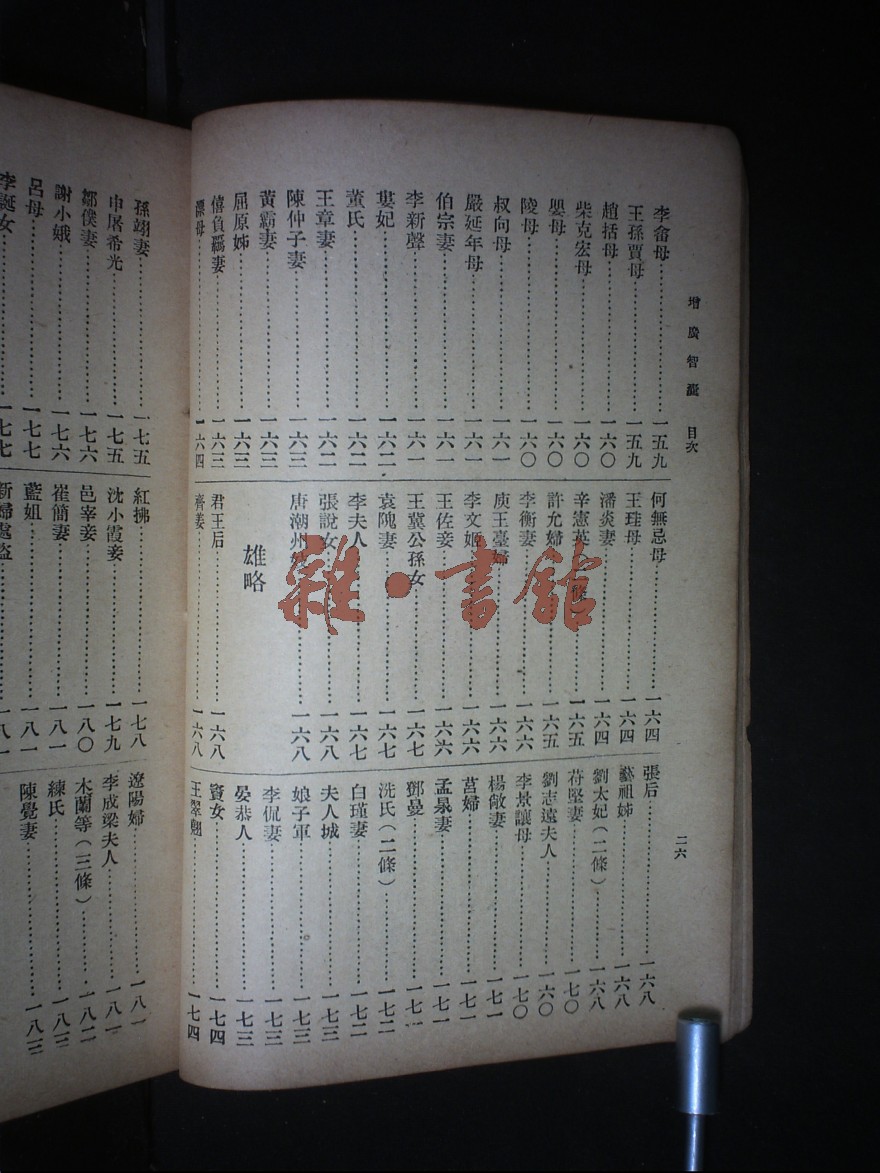 增廣智囊 目次
二六
李畬母⋯⋯一五九
王孫賈母⋯⋯一五九
趙括母⋯⋯一六〇
柴克宏母⋯⋯一六〇
嬰母⋯⋯一六〇
陵母⋯⋯一六〇
叔向母⋯⋯一六一
嚴延年母⋯⋯一六一
伯宗妻⋯⋯一六一
李新聲⋯⋯一六一
婁妃⋯⋯一六二
董氏⋯⋯一六二
王章妻⋯⋯一六二
陳仲子妻⋯⋯一六三
黃霸妻⋯⋯一六三
屈原姊⋯⋯一六三
僖負羈妻⋯⋯一六三
漂母⋯⋯一六四
何無忌母⋯⋯一六四
王珪母⋯⋯一六四
潘炎妻⋯⋯一六四
辛憲英 條）⋯⋯一六五
許允婦⋯⋯一六五
李衡妻⋯⋯一六六
庾王臺婦⋯⋯一六六
李文姬⋯⋯一六六
王佐妾⋯⋯一六六
王冀公孫女⋯⋯一六七
袁隗妻⋯⋯一六七
李夫人⋯⋯一六七
張說女⋯⋯一六八
唐潮州⋯⋯一六八
雄略
君王后⋯⋯一六八
齊姜⋯⋯一六八
張后⋯⋯一六八
藝祖姊⋯⋯一六八
劉太妃（二條）⋯⋯一六八
苻堅妻⋯⋯一七〇
劉志遠夫人⋯⋯一六〇
李景讓母⋯⋯一七〇
楊敞妻⋯⋯一七一
莒婦⋯⋯一七一
孟昶妻⋯⋯一七一
鄧曼⋯⋯一七一
洗氏（二條）⋯⋯一七二
白瑾妻⋯⋯一七二
夫人城⋯⋯一七三
娘子軍⋯⋯一七三
李侃妻⋯⋯一七三
晏恭人⋯⋯一七三
竇女⋯⋯一七四
王翠翹⋯⋯一七四
孫翊妻⋯⋯一七五
申屠希光⋯⋯一七五
鄒僕妻⋯⋯一七六
謝小娥⋯⋯一七六
呂母⋯⋯一七七
李誕女⋯⋯一七七
紅拂⋯⋯一七八
沈小霞妾⋯⋯一七九
邑宰妾⋯⋯一八〇
崔簡妻⋯⋯一八一
藍姐⋯⋯一八一
新婦處盜⋯⋯一八一
遼陽婦⋯⋯一八一
李成梁夫人⋯⋯一八一
木蘭等（三條）⋯⋯一八二
練氏⋯⋯一八三
陳覺妻⋯⋯一八三
雜·書館